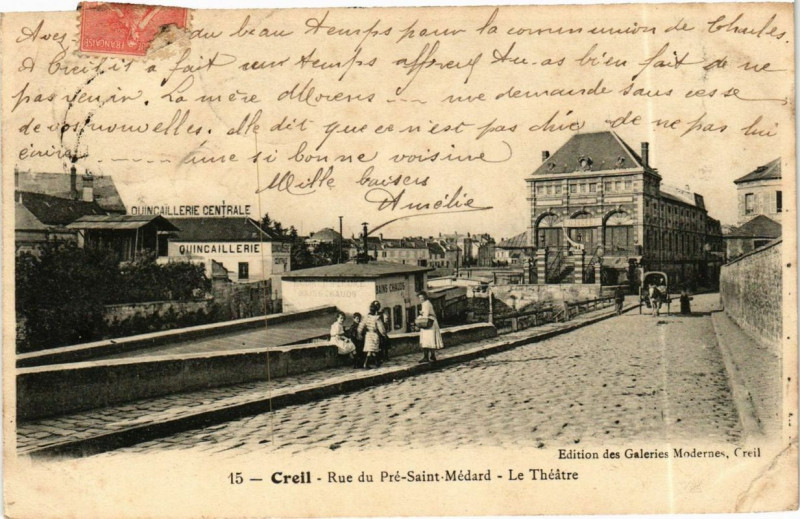 Avez-vous du beau temps pour la communion de Charles.
A Creil il a fait un temps affreux tu as bien fait de ne
pas venir. La mère Morens --- me demande sans cesse
de vos nouvelles. Elle dit que ce n'est pas chic de ne pas lui
écrire ------- à une si bonne voisine
Mille baisers
Amélie
QUINCAILLERIE CENTRALE
QUINCAILLERIE
BAINS CHAUDS
Edition des Galeries Modernes, Creil
15 — Creil - Rue du Pré-Saint-Médard - Le Théâtre